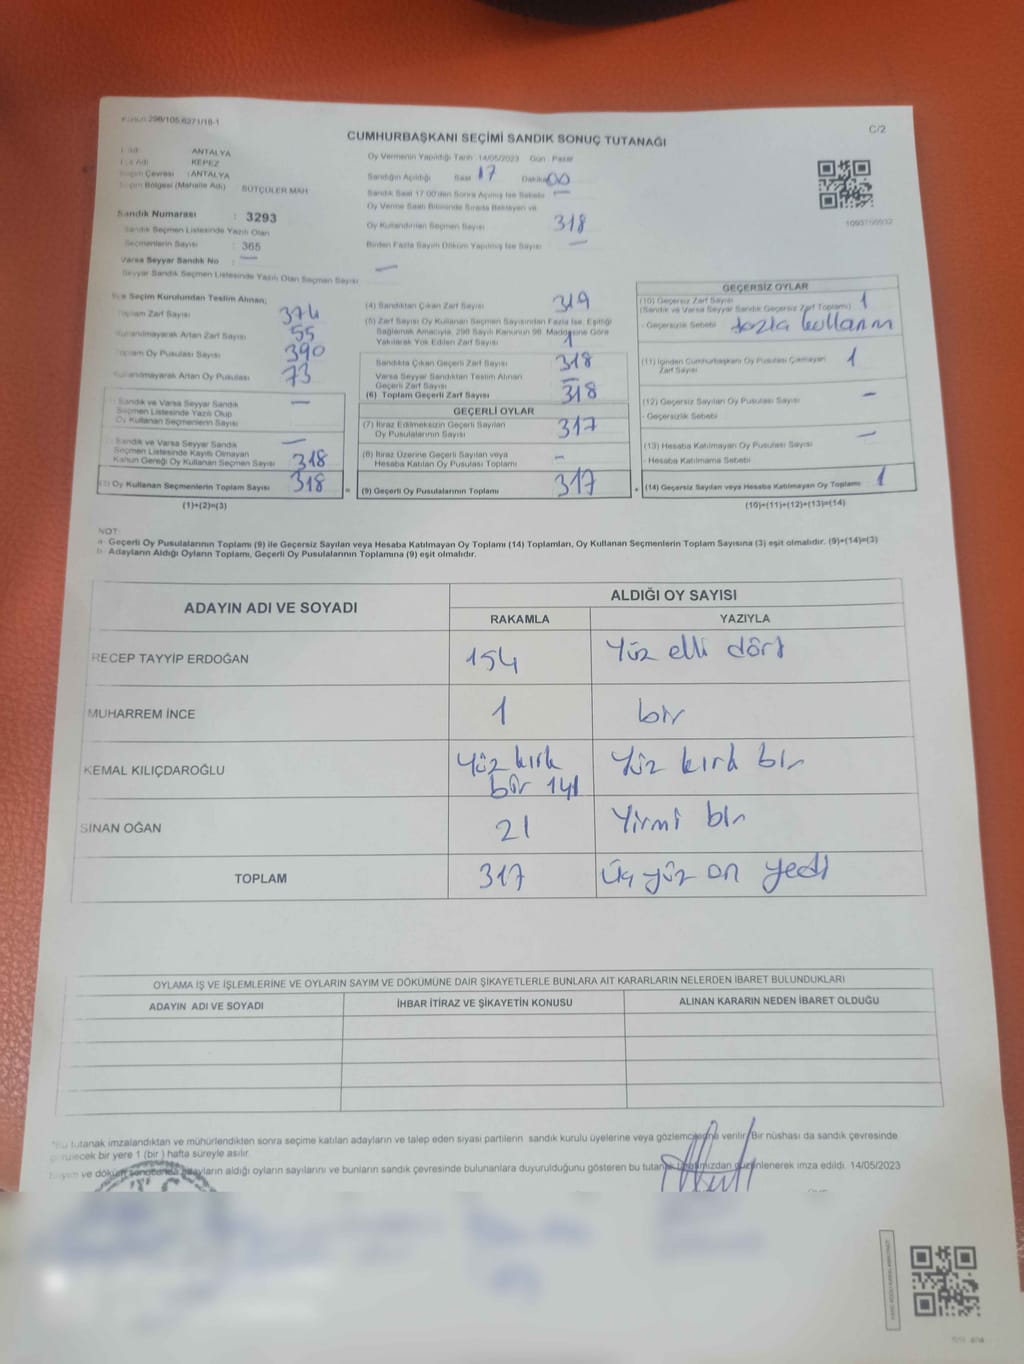 298/105.6271/18-1
C/2
CUMHURBAŞKANI SEÇİMİ SANDIK SONUÇ TUTANAĞI
ANTALYA
KEPEZ
Çevresi : ANTALYA
Bölgesi (Mahalle Adı) SÜTÇÜLER MAH.
Sandık Numarası : 3293
Sandık Seçmen Listesinde Yazılı Olan
Seçmenlerin Sayısı : 365
Varsa Seyyar Sandık No : —
Seyyar Sandık Seçmen Listesinde Yazılı Olan Seçmen Sayısı —
Oy Vermenin Yapıldığı Tarih : 14/05/2023 Gün : Pazar
Sandığın Açıldığı Saat 17 Dakika 00
Sandık Saat 17:00'den Sonra Açılmış İse Sebebi —
Oy Verme Saati Bitiminde Sırada Bekleyen ve
Oy Kullandırılan Seçmen Sayısı 318
Birden Fazla Sayım Döküm Yapılmış İse Sayısı —
Seçim Kurulundan Teslim Alınan;
Toplam Zarf Sayısı 374
Kullanılmayarak Artan Zarf Sayısı 55
Toplam Oy Pusulası Sayısı 390
Kullanılmayarak Artan Oy Pusulası 73
Sandık ve Varsa Seyyar Sandık —
Seçmen Listesinde Yazılı Olup
Oy Kullanan Seçmenlerin Sayısı
Sandık ve Varsa Seyyar Sandık —
Seçmen Listesinde Kayıtlı Olmayan
Kanun Gereği Oy Kullanan Seçmen Sayısı 318
(3) Oy Kullanan Seçmenlerin Toplam Sayısı 318
(1)+(2)=(3)
(4) Sandıktan Çıkan Zarf Sayısı 319
(5) Zarf Sayısı Oy Kullanan Seçmen Sayısından Fazla İse, Eşitliği
Sağlamak Amacıyla, 298 Sayılı Kanunun 98. Maddesine Göre
Yakılarak Yok Edilen Zarf Sayısı 1
Sandıkta Çıkan Geçerli Zarf Sayısı 318
Varsa Seyyar Sandıktan Teslim Alınan
Geçerli Zarf Sayısı —
(6) Toplam Geçerli Zarf Sayısı 318
GEÇERLİ OYLAR
(7) İtiraz Edilmeksizin Geçerli Sayılan
Oy Pusulalarının Sayısı 317
(8) İtiraz Üzerine Geçerli Sayılan veya
Hesaba Katılan Oy Pusulası Toplamı –
= (9) Geçerli Oy Pusulalarının Toplamı 317
GEÇERSİZ OYLAR
(10) Geçersiz Zarf Sayısı 1
(Sandık ve Varsa Seyyar Sandık Geçersiz Zarf Toplamı)
- Geçersizlik Sebebi fazla kullanım
(11) İçinden Cumhurbaşkanı Oy Pusulası Çıkmayan 1
Zarf Sayısı
(12) Geçersiz Sayılan Oy Pusulası Sayısı —
- Geçersizlik Sebebi
(13) Hesaba Katılmayan Oy Pusulası Sayısı —
- Hesaba Katılmama Sebebi
+ (14) Geçersiz Sayılan veya Hesaba Katılmayan Oy Toplamı 1
(10)+(11)+(12)+(13)=(14)
NOT:
a- Geçerli Oy Pusulalarının Toplamı (9) ile Geçersiz Sayılan veya Hesaba Katılmayan Oy Toplamı (14) Toplamları, Oy Kullanan Seçmenlerin Toplam Sayısına (3) eşit olmalıdır. (9)+(14)=(3)
b- Adayların Aldığı Oyların Toplamı, Geçerli Oy Pusulalarının Toplamına (9) eşit olmalıdır.
ADAYIN ADI VE SOYADI
ALDIĞI OY SAYISI
RAKAMLA YAZIYLA
RECEP TAYYİP ERDOĞAN 154 Yüz elli dört
MUHARREM İNCE 1 bir
KEMAL KILIÇDAROĞLU Yüz kırk bir 141 Yüz kırk bir
SİNAN OĞAN 21 Yirmi bir
TOPLAM 317 Üç yüz on yedi
OYLAMA İŞ VE İŞLEMLERİNE VE OYLARIN SAYIM VE DÖKÜMÜNE DAİR ŞİKAYETLERLE BUNLARA AİT KARARLARIN NELERDEN İBARET BULUNDUKLARI
ADAYIN ADI VE SOYADI İHBAR İTİRAZ VE ŞİKAYETİN KONUSU ALINAN KARARIN NEDEN İBARET OLDUĞU
*Bu tutanak imzalandıktan ve mühürlendikten sonra seçime katılan adayların ve talep eden siyasi partilerin sandık kurulu üyelerine veya gözlemcisine verilir. Bir nüshası da sandık çevresinde
görülecek bir yere 1 (bir) hafta süreyle asılır.
Sayım ve döküm sonucunda adayların aldığı oyların sayılarını ve bunların sandık çevresinde bulunanlara duyurulduğunu gösteren bu tutanak tarafımızdan düzenlenerek imza edildi. 14/05/2023